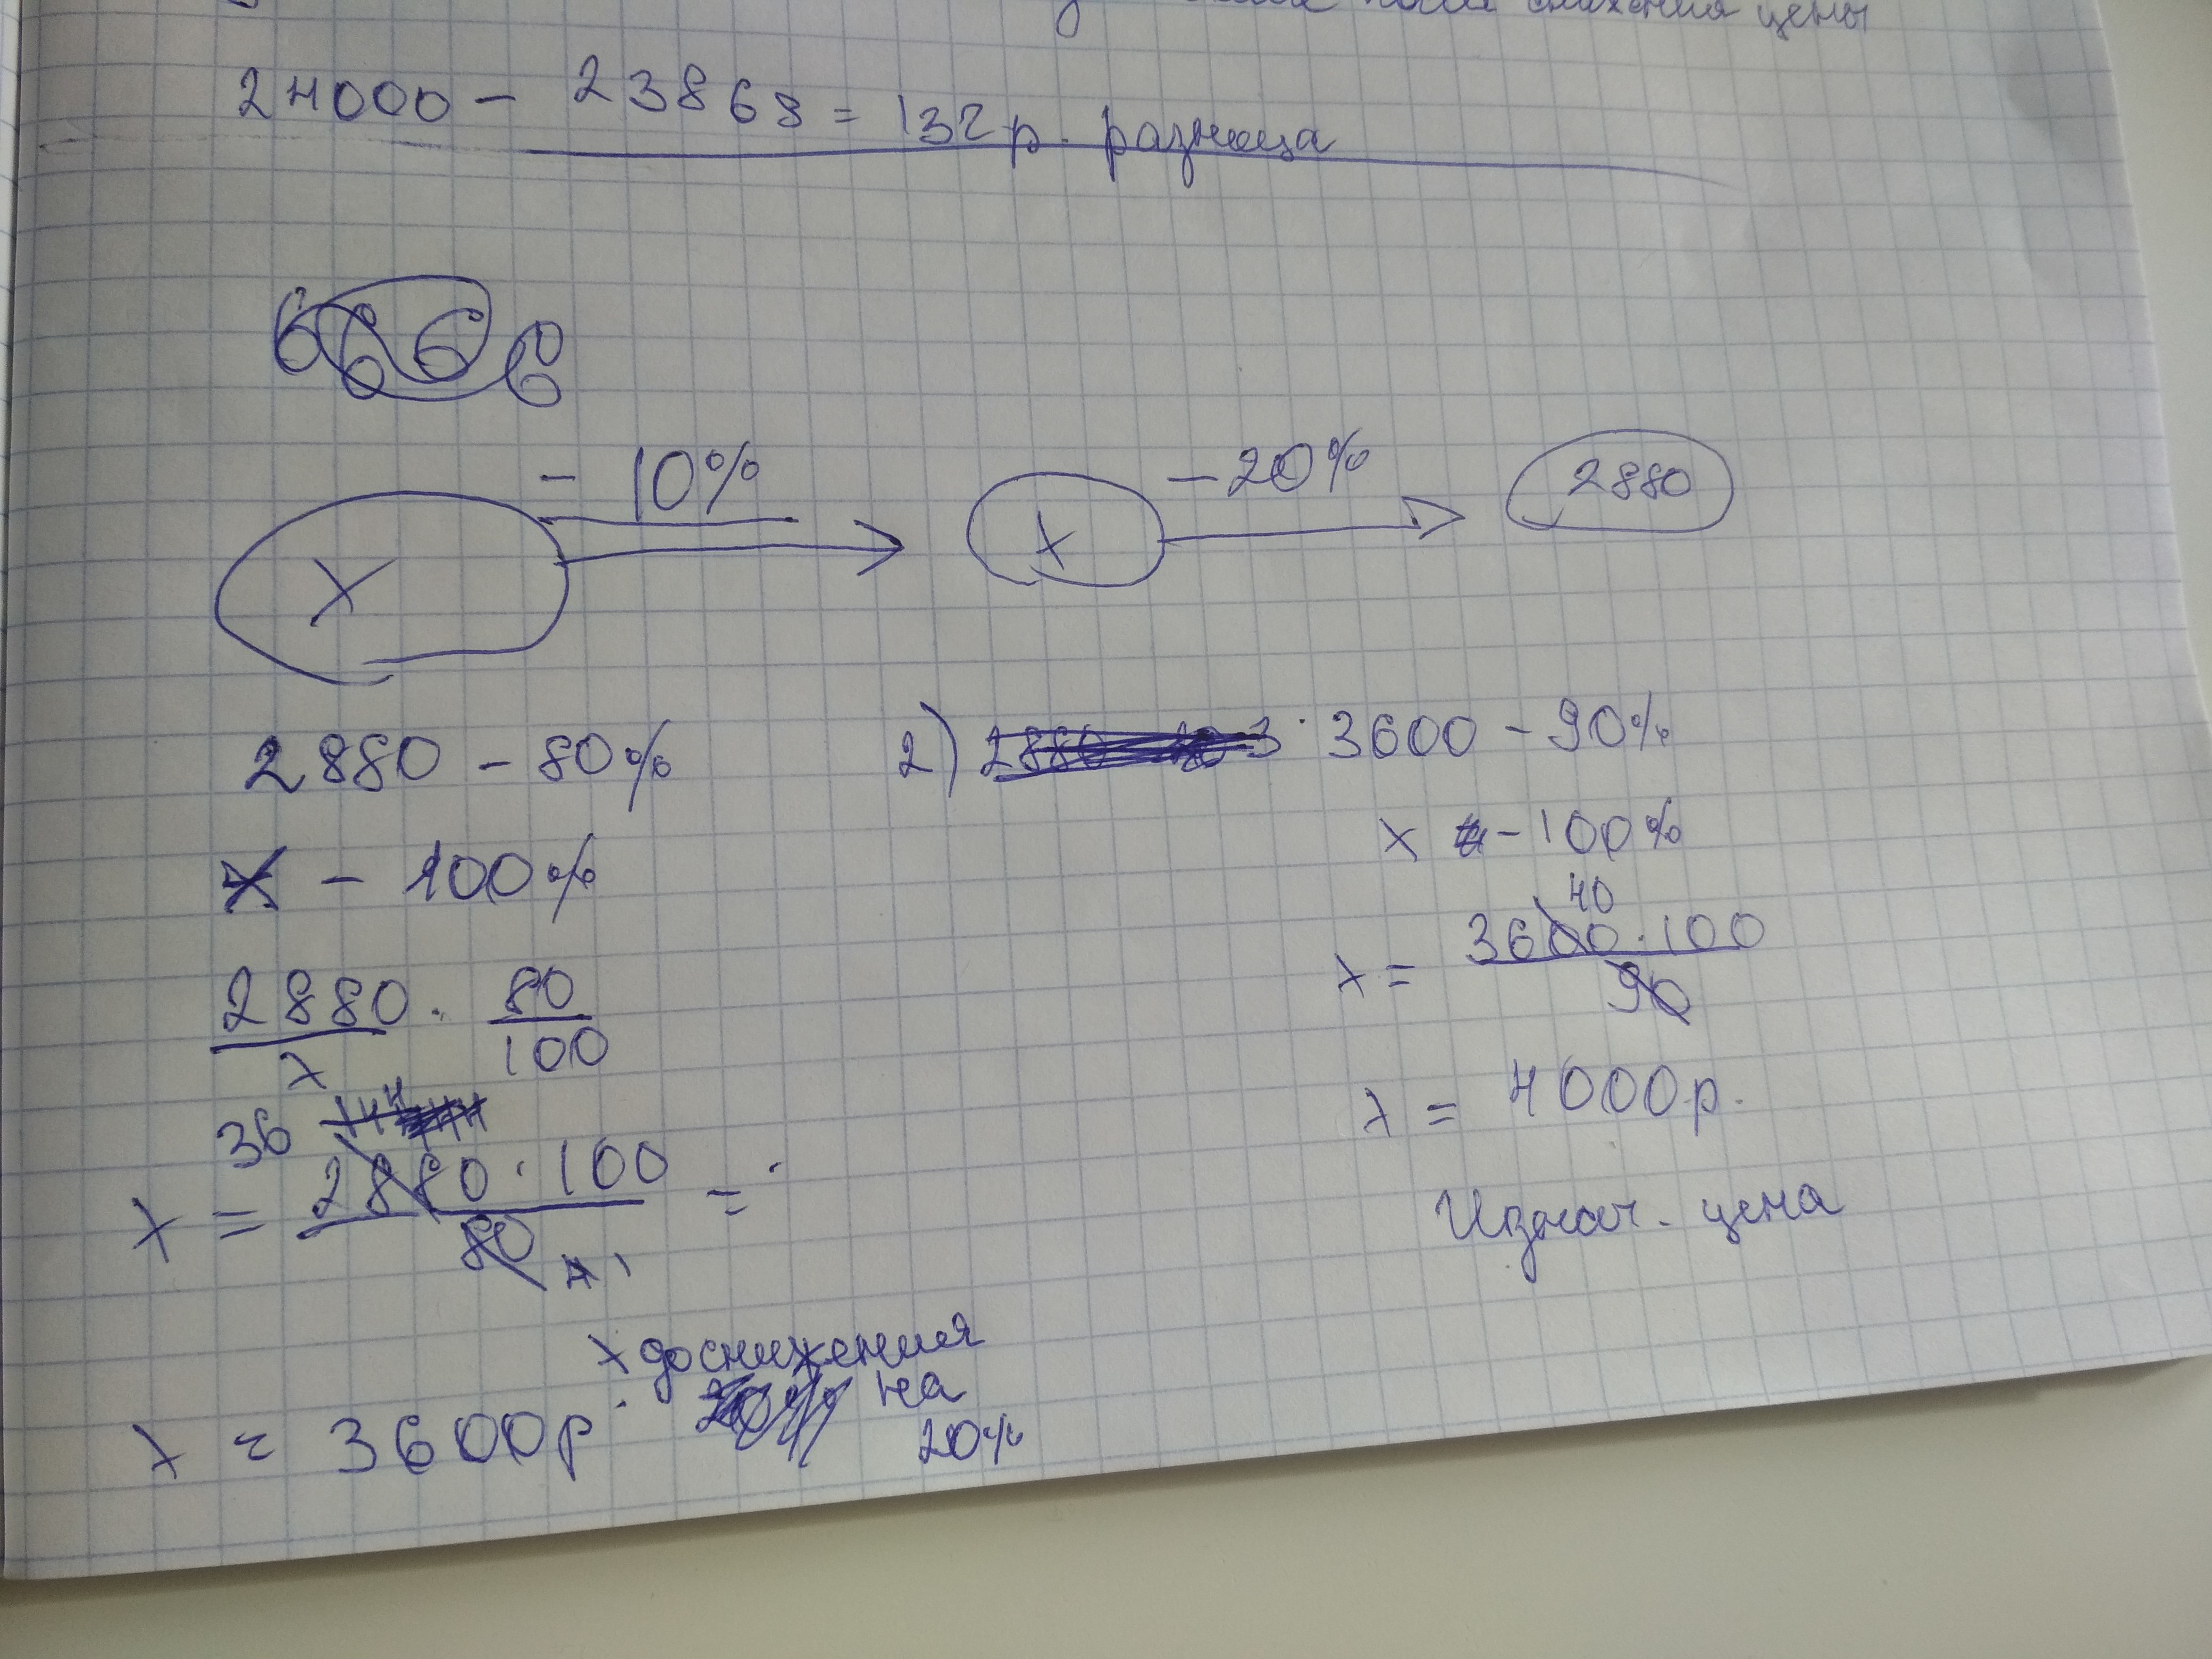 снижения цены
24000 - 23868 = 132 р. разница
6 6 6 6
- 10%
- 20%
X
X
2880
2880 - 80%
X - 100%
2880 · 80
x 100
36
x = 2880 · 100 =
80
1
x до снижения
на
20%
x = 3600р.
2) 3600 - 90%
x - 100%
40
x = 3600 · 100
90
x = 4000р.
Изнач. цена